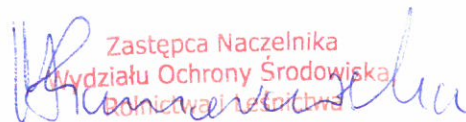 Zastępca Naczelnika
Wydziału Ochrony Środowiska
Rolnictwa i Leśnictwa